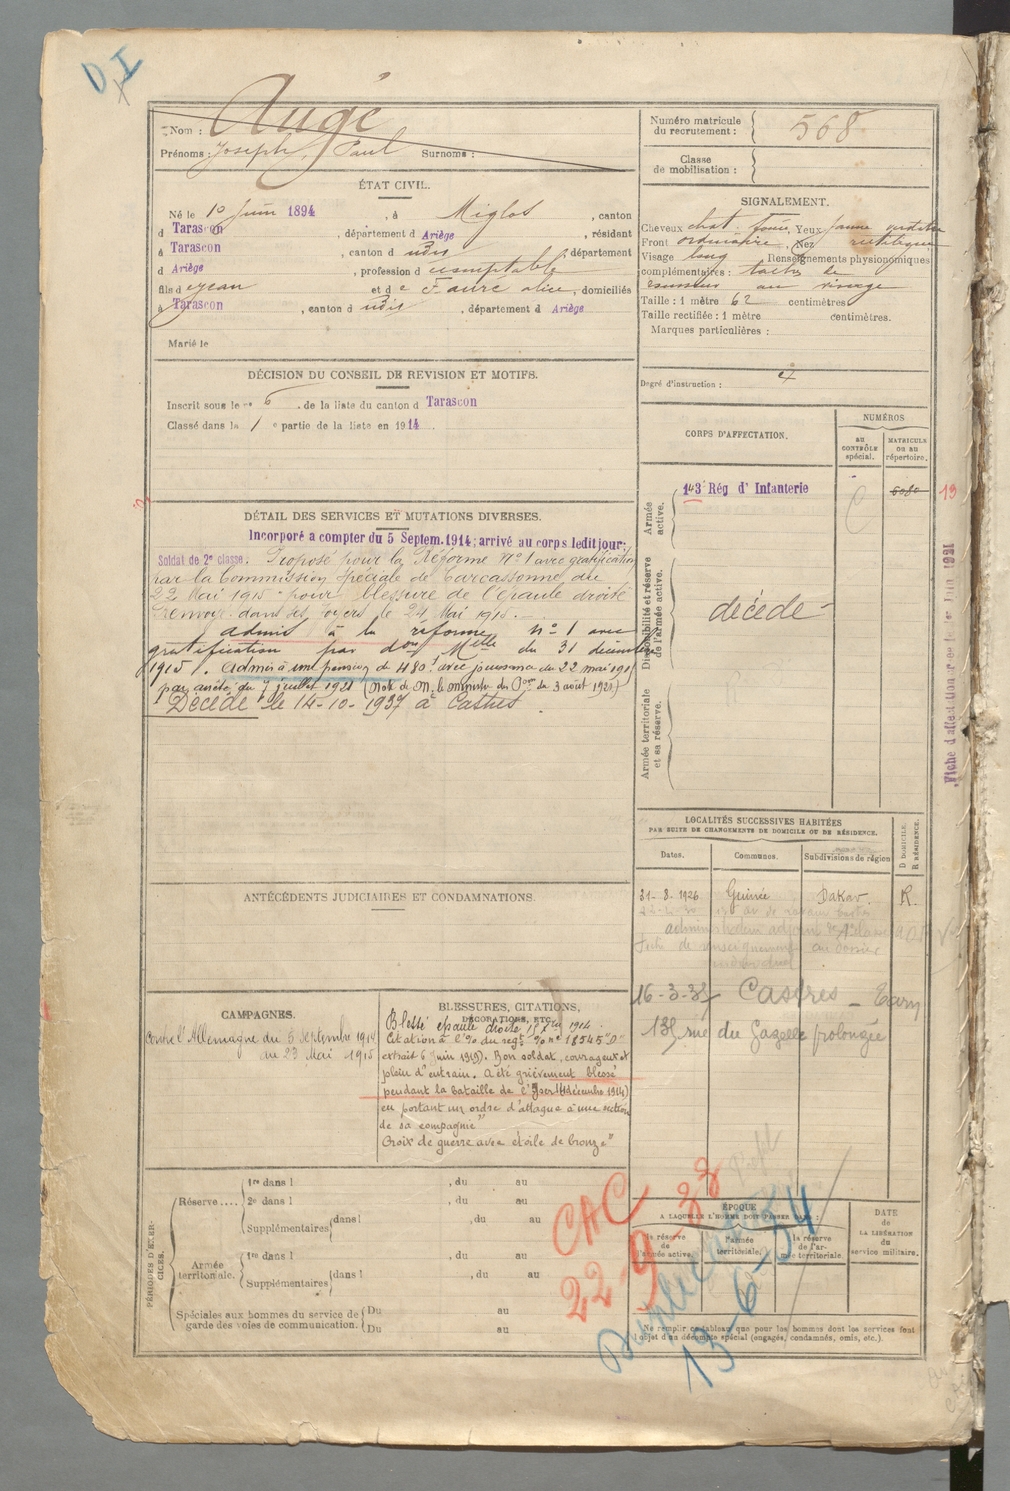 D I
Nom : Augé
Prénoms : Joseph, Paul Surnoms :
Numéro matricule du recrutement : 568
Classe de mobilisation :
ÉTAT CIVIL.
Né le 10 Juin 1894, à Miglos, canton
d Tarascon, département d Ariège, résidant
à Tarascon, canton d udis, département
d Ariège, profession d comptable
fils d e Jean et d e Faure Alice, domiciliés
à Tarascon, canton d udis, département d Ariège
Marié le
SIGNALEMENT.
Cheveux chat. foncé, Yeux jaune verdâtre
Front ordinaire, Nez rectiligne
Visage long Renseignements physionomiques
complémentaires : taches de
rousseur au visage
Taille : 1 mètre 62 centimètres
Taille rectifiée : 1 mètre centimètres.
Marques particulières :
Degré d'instruction :
DÉCISION DU CONSEIL DE REVISION ET MOTIFS.
Inscrit sous le n° 6 de la liste du canton d Tarascon
Classé dans la 1e partie de la liste en 1914
CORPS D'AFFECTATION.
NUMÉROS
AU CONTRÔLE spécial.
MATRICULE OU AU répertoire.
Armée active.
143e Rég d' Infanterie 6080
13
Disponibilité et réserve de l'armée active.
décédé
Armée territoriale et sa réserve.
DÉTAIL DES SERVICES ET MUTATIONS DIVERSES.
Incorporé a compter du 5 Septem. 1914; arrivé au corps ledit jour;
Soldat de 2e classe. Proposé pour la Réforme N° 1 avec gratification
par la Commission Spéciale de Carcassonne du
22 Mai 1915 pour blessure de l'épaule droite
Renvoyé dans ses foyers le 24 Mai 1915.
admis à la réforme n° 1 avec
gratification par don Mlle du 31 décembre
1915. Admis à une pension de 480f avec jouissance du 22 mai 1915
par arrêté du 7 juillet 1921 (Note de M. le Ministre des Pons du 3 août 1921)
Décédé le 14-10-1937 à Castres
LOCALITÉS SUCCESSIVES HABITÉES
PAR SUITE DE CHANGEMENTS DE DOMICILE OU DE RÉSIDENCE.
Dates. Communes. Subdivisions de région D DOMICILE. R RÉSIDENCE.
31-8-1926 Guinée Dakar. R.
administrateur adjoint
fiche de renseignements au dossier
16-3-37 Castres - Tarn
135 rue du Gazelle prolongée
ANTÉCÉDENTS JUDICIAIRES ET CONDAMNATIONS.
CAMPAGNES.
Contre l'Allemagne du 5 Septembre 1914
au 23 Mai 1915
BLESSURES, CITATIONS,
DÉCORATIONS, ETC.
Blessé épaule droite 1914
Citation à l'% du régt % n° 18545 "D"
extrait 6 juin 1919). Bon soldat, courageux et
plein d'entrain. A été grièvement blessé
pendant la bataille de l'Yser (décembre 1914)
en portant un ordre d'attaque à une section
de sa compagnie"
Croix de guerre avec étoile de bronze"
PÉRIODES D'EXERCICES.
Réserve....
1re dans l , du au
2e dans l , du au
Supplémentaires dans l , du au
Armée territoriale.
1re dans l , du au
Supplémentaires dans l , du au
Spéciales aux hommes du service de garde des voies de communication. Du au
Du au
CAC
22-9-38
13-6-34
ÉPOQUE
A LAQUELLE L'HOMME DOIT PASSER DANS :
la réserve de l'armée active.
l'armée territoriale.
la réserve de l'armée territoriale.
DATE de LA LIBÉRATION du service militaire.
Ne remplir ce tableau que pour les hommes dont les services font
objet d'un décompte spécial (engagés, condamnés, omis, etc.).